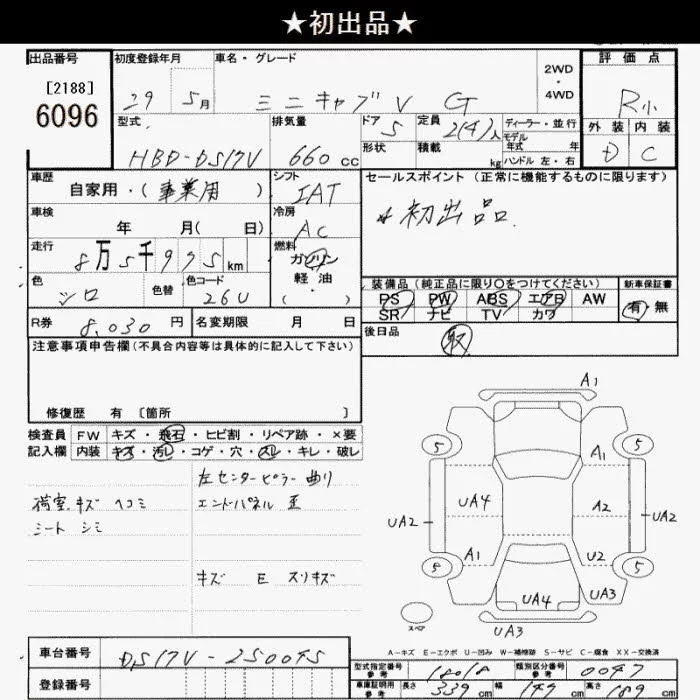 ★初出品★
出品番号 初度登録年月 車名・グレード 2WD・4WD 評価点
[2188]
6096
29 5月 ミニキャブV G R小
外装 内装
D C
型式 排気量 ドア 定員 ディーラー・並行
HBD-DS17V 660cc 5 2(4)人 モデル年式 年
形状 積載 kg ハンドル 左・右
車歴 シフト セールスポイント(正常に機能するものに限ります)
自家用・(事業用) IAT
*初出品.
車検 冷房
年 月( 日) AC
走行 燃料
8万5千995km ガソリン
軽油
(・)
色 色替 色コード
シロ 26U
装備品(純正品に限り○をつけてください) 新車保証書
PS PW ABS エアB AW 有 無
SR ナビ TV カワ
R券 8,030円 名変期限 月 日
後日品
取
注意事項申告欄(不具合内容等は具体的に記入して下さい)
修復歴 有 [箇所 ]
検査員 FW キズ・飛石・ヒビ割・リペア跡・×要
記入欄 内装 キズ・汚レ・コゲ・穴・スレ・キレ・破レ
左センターピラー曲り
荷室キズ ヘコミ エンドパネル歪
シート シミ
キズ E スリキズ
A1
5 A1 5
UA2 UA4 A2 UA2
A1 U2
5 UA4 UA3 5
スペア UA3
A-キズ E-エクボ U-凹み W-補修跡 S-サビ C-腐食 XX-交換済
車台番号 DS17V-250045
登録番号
型式指定番号 参考 18018 類別区分番号 参考 0047
車庫証明用 参考 長さ 339cm 幅 147cm 高さ 189cm